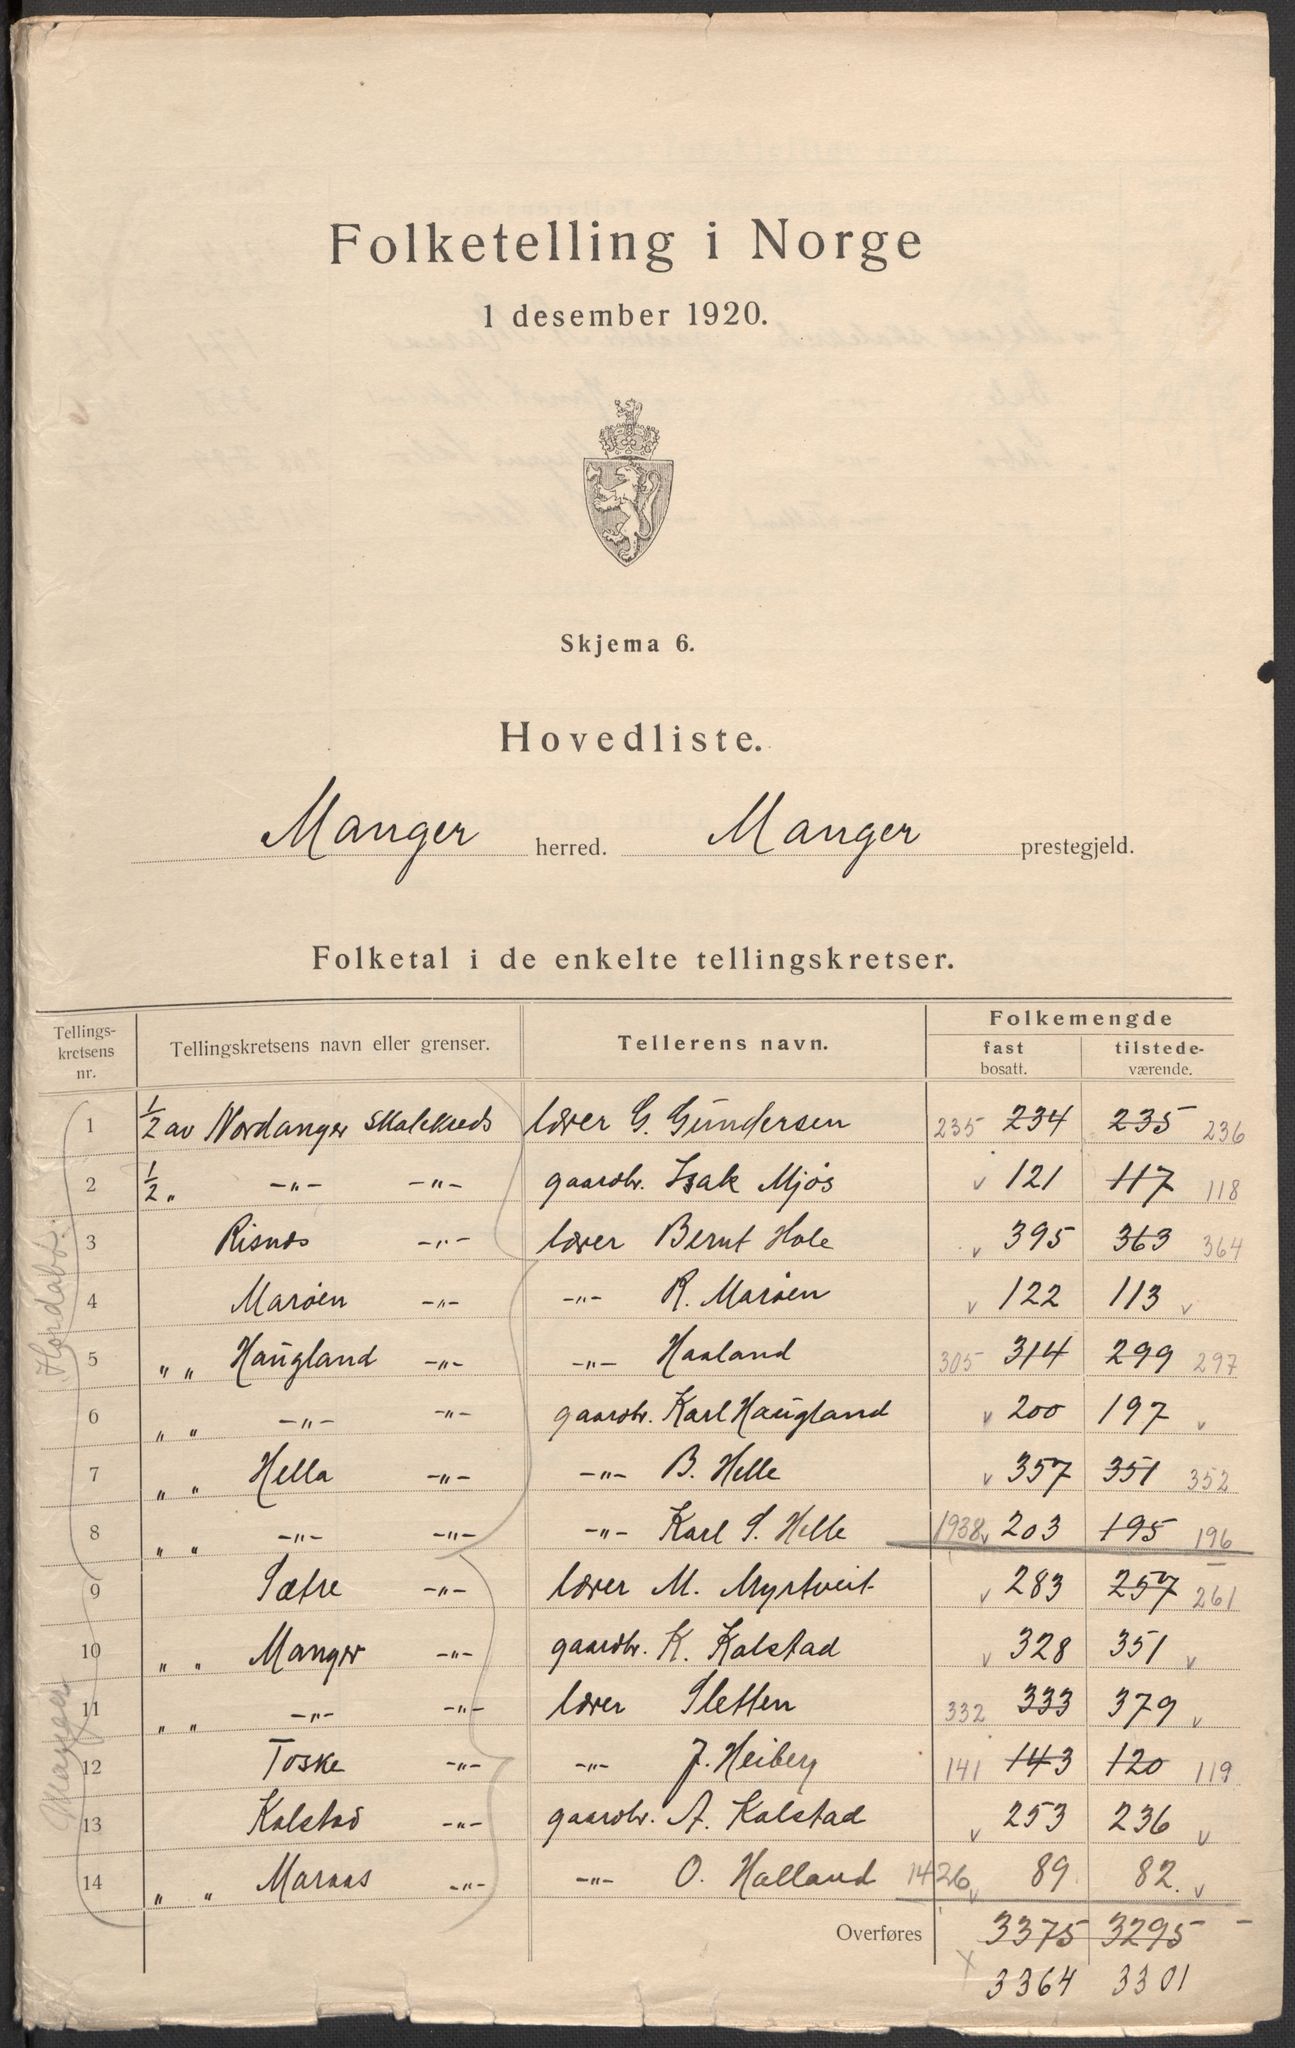 Folketelling i Norge
1 desember 1920.
Skjema 6.
Hovedliste.
Manger herred. Manger prestegjeld.
Folketal i de enkelte tellingskretser.
Tellings-kretsens nr. Tellingskretsens navn eller grenser. Tellerens navn. Folkemengde fast bosatt. tilstede-værende.
1 ½ av Nordanger skolekreds lærer G. Gundersen 235 234 235 236
2 ½ „ -„- -„- gaardbr. Isak Mjøs v 121 117 118
3 Risnes -„- lærer Bernt Hole v 395 363 364
4 Marøen -„- -„- R. Marøen v 122 113 v
5 „ „ Haugland -„- -„- Haaland 305 314 299 297
6 „ „ -„- -„- gaardbr. Karl Haugland v 200 197 v
7 „ „ Hella -„- -„- B. Helle v 357 351 352
8 „ „ -„- -„- -„- Karl S. Helle 1938 v 203 195 196
9 Sætre -„- lærer M. Myrtveit v 283 257 261
10 „ „ Manger -„- gaardbr. K. Kolstad v 328 351 v
11 „ „ -„- -„- lærer Sletten 332 333 379 v
12 Toske -„- -„- J. Heiberg 141 143 120 119
13 Kolstad -„- gaardbr. A. Kolstad v 253 236 v
14 „ „ Maraas -„- -„- O. Halland 1426 v 89 82. v
Overføres 3375 3295 -
x 3364 3301
Hordabø.
Manger